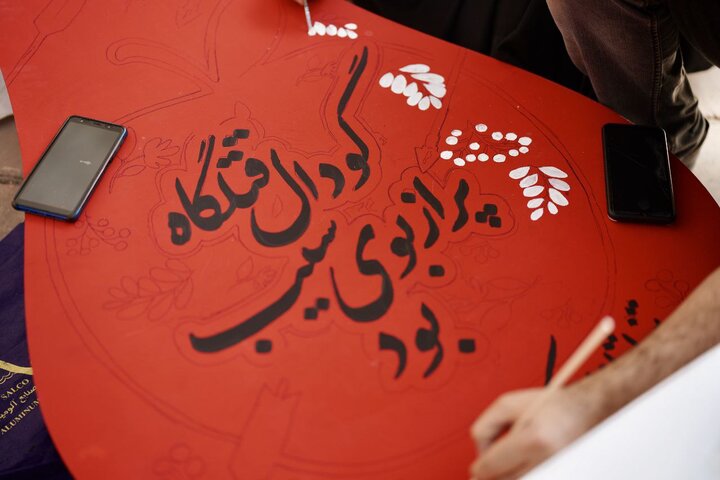 گودال قتلگاه
پر از بوی سیب
بود
SALCO
ALUMINUM